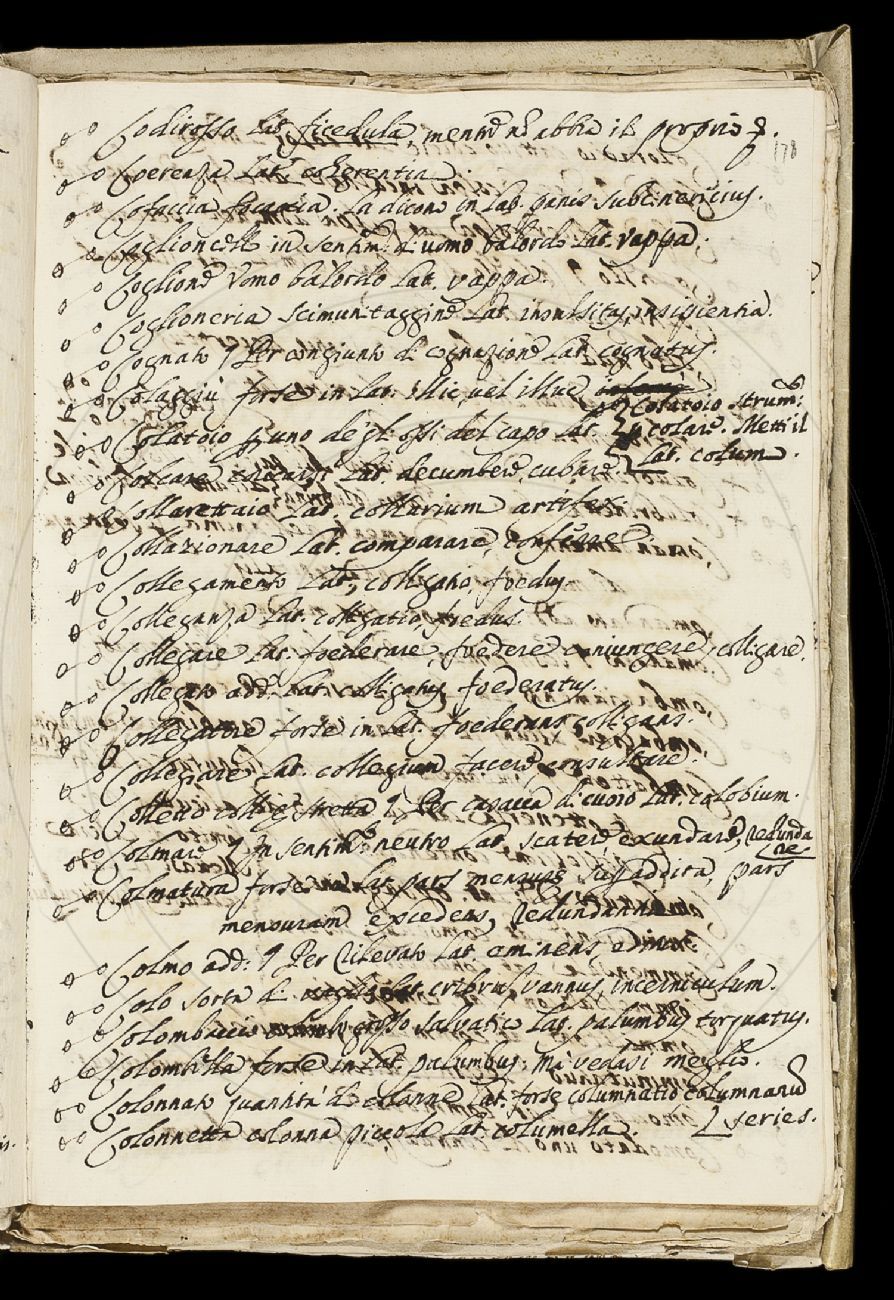 Codirosso Lat. ficedula mentre nō abbia il proprio
178
Coerenza Lat. coherentia.
Cofaccia focaccia. La dicono in Lat. panis subcinericius.
Coglioncello in sentim: di uomo balordo Lat. vappa.
Coglione Vomo balordo Lat. vappa.
Coglioneria scimunitaggine Lat. insulsitas, insipientia.
Cognato ¶ Per congiunto di cognazione Lat. cognatus.
Colaggiù forse in Lat. illic, vel illuc
Colatoio strum:
Colatoio uno degl: ossi del capo Lat.
colare. Metti il
Lat. colum.
Colcare Lat. decumbere, cubare
Collarettaio Lat. collarium artifex.
Collazionare Lat. comparare, conferre.
Collegamento Lat. colligatio, foedus
Colleganza Lat. colligatio, foedus.
Collegare Lat. foederare, foedere coniungere, colligare.
Collegato add. Lat. colligatus, foederatus.
Collegatore forse in Lat. foederans colligans.
Collegiare Lat. collegium facere consultare.
Colletto colle stretta ¶ Per casacca di cuoio Lat. colobium.
Colmare ¶ In sentim: neutro Lat. scatere, exundare, redunda
re
Colmatura forse in Lat. pars mensurae superaddita, pars
mensuram excedens, redundans
Colmo add: ¶ Per Rilevato Lat. eminens,
Colo sorta di vaglio Lat. cribrus vannus, incerniculum.
Colombaccio grosso salvatico Lat. palumbus torquatus.
Colombella forse in Lat. palumbus: Ma vedasi meglio.
Colonnato quantità di colonne Lat. forse columnatio columnarū
series.
Colonnetta colonna piccola Lat. columella.